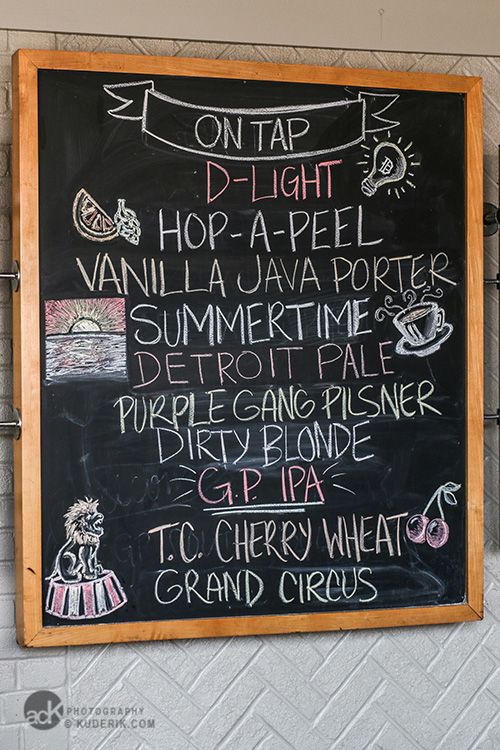 ON TAP
D-LIGHT
D
HOP-A-PEEL
VANILLA JAVA PORTER
SUMMERTIME
DETROIT PALE
PURPLE GANG PILSNER
DIRTY BLONDE
G.P. IPA
T.C. CHERRY WHEAT
GRAND CIRCUS
adK PHOTOGRAPHY
© KUDERIK.COM